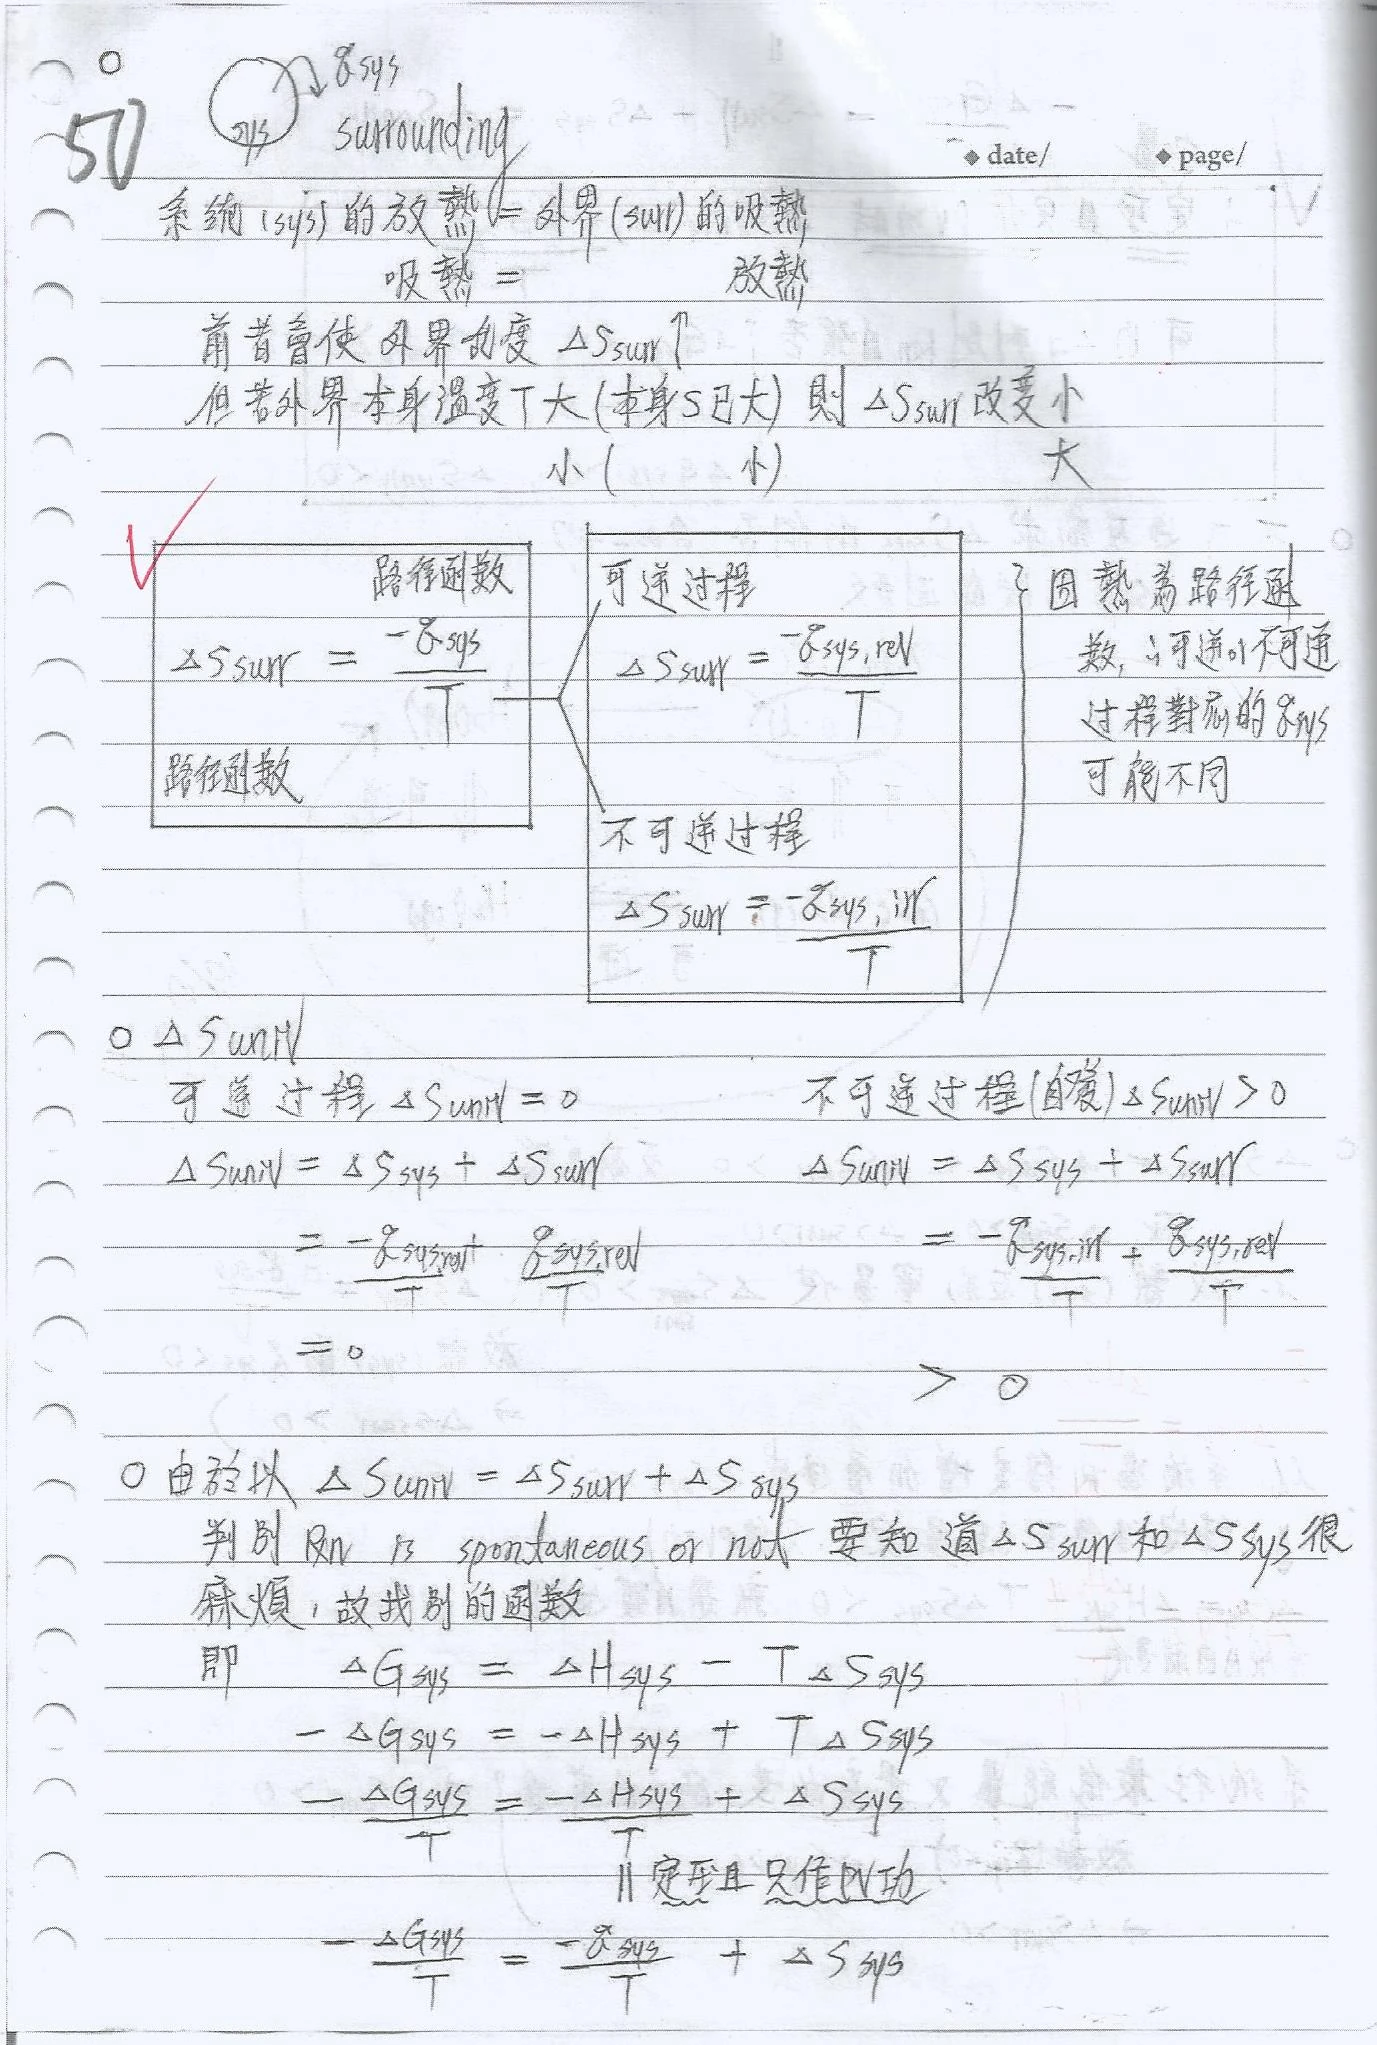 50
sys
q sys
surrounding
◆ date/ ◆ page/
系統(sys)的放熱=外界(surr)的吸熱
吸熱= 放熱
前者會使外界亂度 △Ssurr↑
但若外界本身溫度T大(本身S已大) 則 △Ssurr改變小
小( 小) 大
路徑函數
△Ssurr = -q sys / T
路徑函數
可逆过程
△Ssurr = -q sys, rev / T
不可逆过程
△Ssurr = -q sys, irr / T
因熱為路徑函
數, ∴可逆 不可逆
过程對應的 q sys
可能不同
○ △Suniv
可逆过程 △Suniv = 0
△Suniv = △Ssys + △Ssurr
= -q sys,rev / T + q sys,rev / T
= 0
不可逆过程(自發) △Suniv > 0
△Suniv = △Ssys + △Ssurr
= -q sys,irr / T + q sys,rev / T
> 0
○ 由於以 △Suniv = △Ssurr + △Ssys
判別 Rxn is spontaneous or not 要知道△Ssurr和△Ssys很
麻煩,故找別的函數
即 △Gsys = △Hsys - T△Ssys
- △Gsys = -△Hsys + T△Ssys
- △Gsys / T = -△Hsys / T + △Ssys
|| 定压且只作PV功
- △Gsys / T = -q sys / T + △Ssys